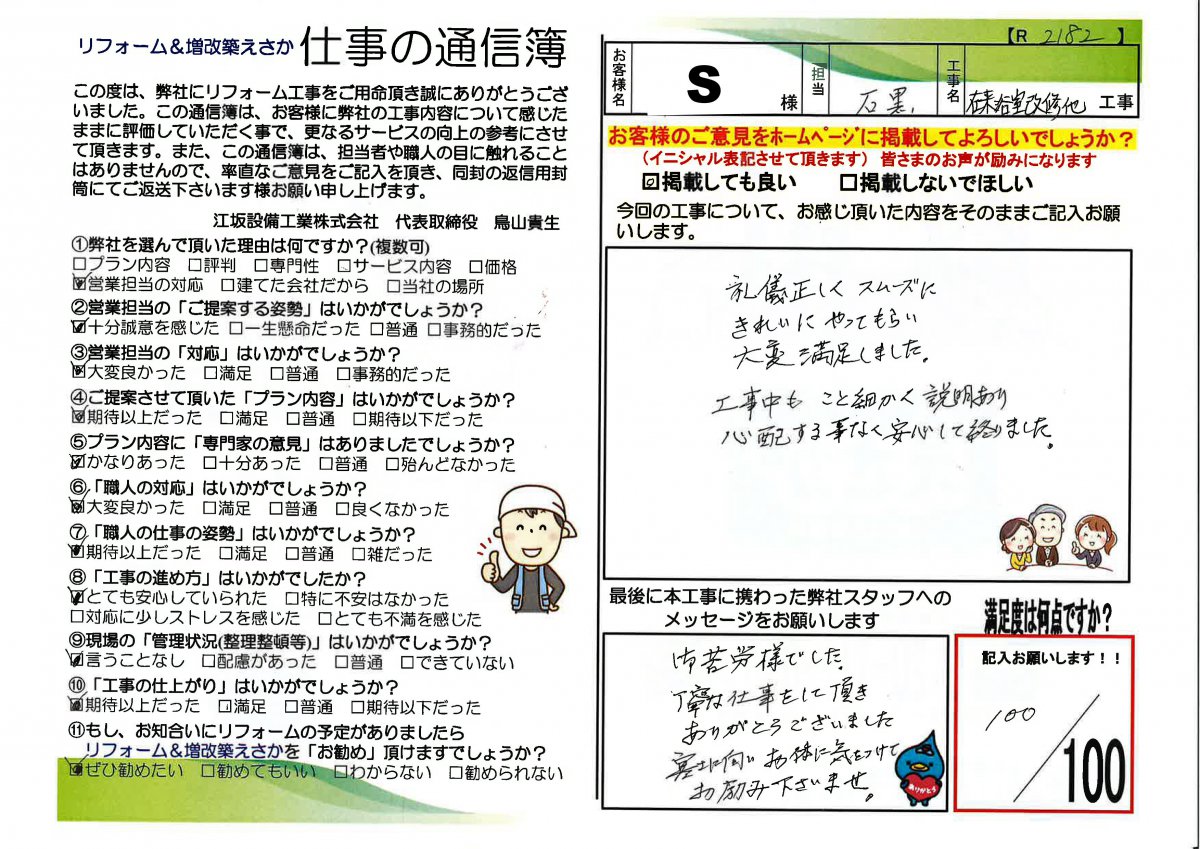 リフォーム&増改築えさか 仕事の通信簿
この度は、弊社にリフォーム工事をご用命頂き誠にありがとうござ
いました。この通信簿は、お客様に弊社の工事内容について感じた
ままに評価していただく事で、更なるサービスの向上の参考にさせ
て頂きます。また、この通信簿は、担当者や職人の目に触れること
はありませんので、率直なご意見をご記入を頂き、同封の返信用封
筒にてご返送下さいます様お願い申し上げます。
江坂設備工業株式会社 代表取締役 鳥山貴生
①弊社を選んで頂いた理由は何ですか?(複数可)
□プラン内容 □評判 □専門性 □サービス内容 □価格
☑営業担当の対応 □建てた会社だから □当社の場所
②営業担当の「ご提案する姿勢」はいかがでしょうか?
☑十分誠意を感じた □一生懸命だった □普通 □事務的だった
③営業担当の「対応」はいかがでしょうか?
☑大変良かった □満足 □普通 □事務的だった
④ご提案させて頂いた「プラン内容」はいかがでしょうか?
☑期待以上だった □満足 □普通 □期待以下だった
⑤プラン内容に「専門家の意見」はありましたでしょうか?
☑かなりあった □十分あった □普通 □殆んどなかった
⑥「職人の対応」はいかがでしょうか?
☑大変良かった □満足 □普通 □良くなかった
⑦「職人の仕事の姿勢」はいかがでしょうか?
☑期待以上だった □満足 □普通 □雑だった
⑧「工事の進め方」はいかがでしたか?
☑とても安心していられた □特に不安はなかった
□対応に少しストレスを感じた □とても不満を感じた
⑨現場の「管理状況(整理整頓等)」はいかがでしょうか?
☑言うことなし □配慮があった □普通 □できていない
⑩「工事の仕上がり」はいかがでしょうか?
☑期待以上だった □満足 □普通 □期待以下だった
⑪もし、お知合いにリフォームの予定がありましたら
リフォーム&増改築えさかを「お勧め」頂けますでしょうか?
☑ぜひ勧めたい □勧めてもいい □わからない □勧められない
【R 2182 】
お客様名 S 様 担当 石黒 工事名 浴室改修他 工事
お客様のご意見をホームページに掲載してよろしいでしょうか?
(イニシャル表記させて頂きます) 皆さまのお声が励みになります
☑掲載しても良い □掲載しないでほしい
今回の工事について、お感じ頂いた内容をそのままご記入お願
いします。
礼儀正しく スムーズに
きれいに やってもらい
大変満足しました。
工事中も こと細かく説明あり
心配する事なく安心して終りました。
最後に本工事に携わった弊社スタッフへの
メッセージをお願いします
御苦労様でした。
丁寧な仕事をして頂き
ありがとうございました
寒さに向い お体に気をつけて
お励み下さいませ。
ありがとう
満足度は何点ですか?
記入お願いします!!
100
/100